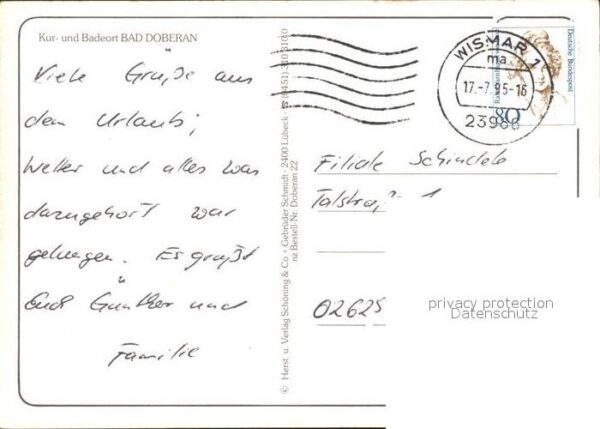 Kur- und Badeort BAD DOBERAN
Viele Grüße aus
dem Urlaub;
Wetter und alles was
dazugehört war
gelungen. Es grüßt
Euch Günther und
Familie
© Herst. u. Verlag Schöning & Co + Gebrüder Schmidt · 2400 Lübeck · (0451) 310 3100
nz Bestell-Nr. Doberan 22
WISMAR 1
ma
17.-7.95-16
23966
Deutsche Bundespost
80
Filiale Schindele
Talstraße 1
02625
privacy protection
Datenschutz